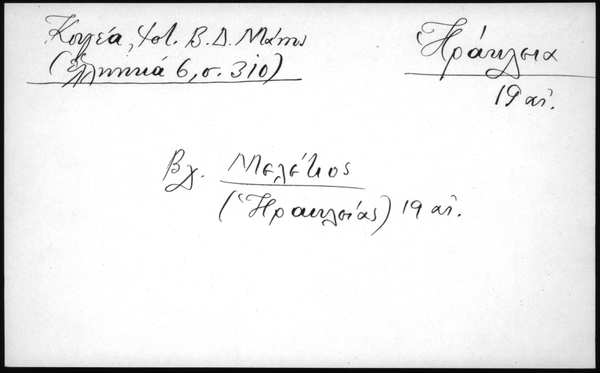 Κουγέα, Χφ. Β. Δ. Μάτη
(Ἑλληνικά 6, σ. 310)
Ἡράκλεια
19 αἰ.
Βλ. Μελέτιος
(Ἡρακλείας) 19 αἰ.